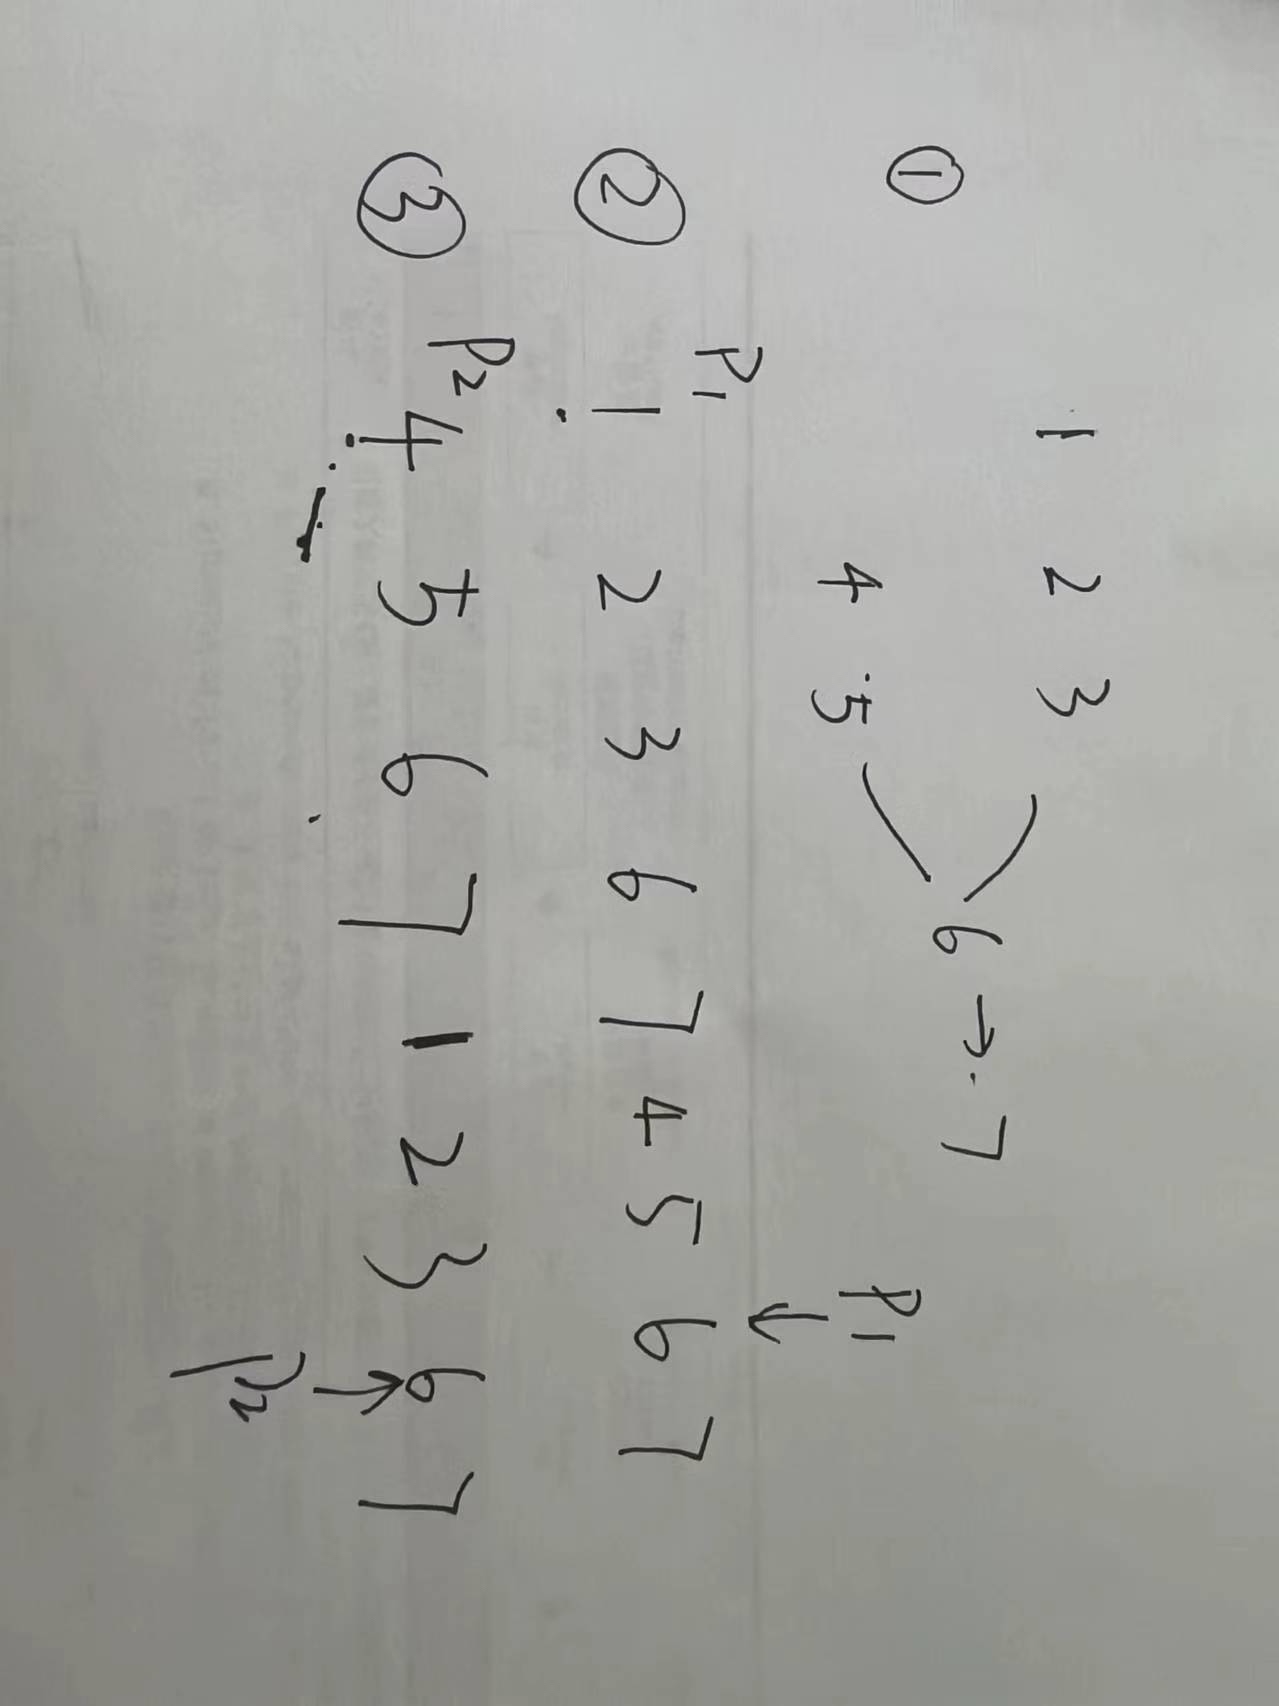 ①
1 2 3
6 → 7
4 5
P1 P1
② 1 2 3 6 7 4 5 6 7
P2
③ 4 5 6 7 1 2 3 6 7
P2